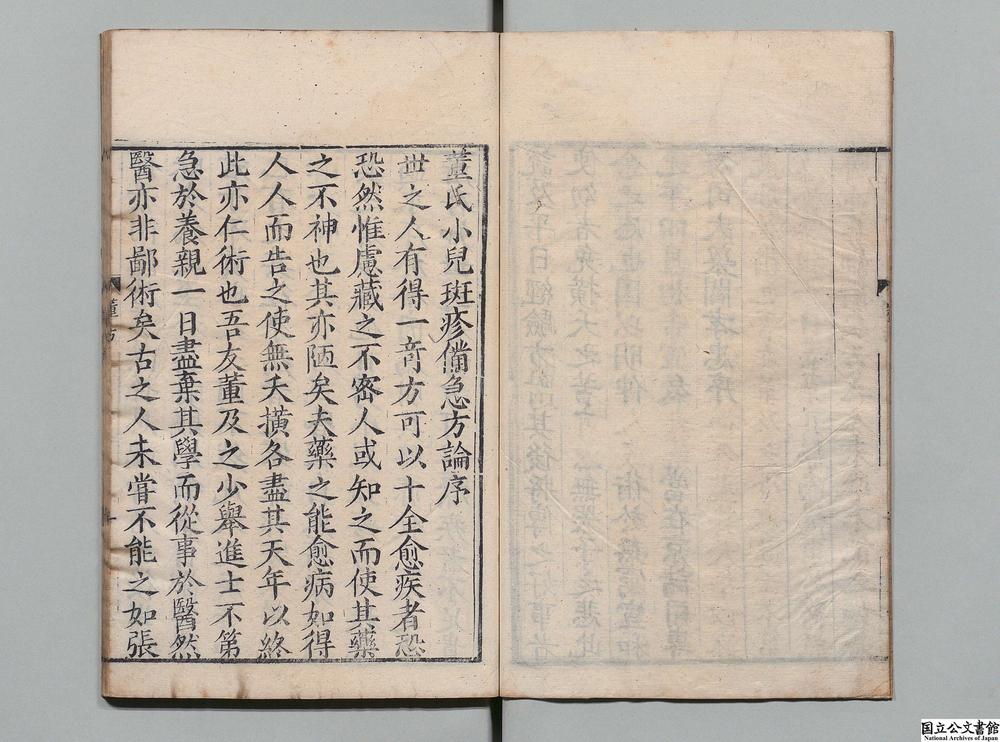 董氏小兒斑疹備急方論序
世之人有得一竒方可以十全愈疾者恐
恐然惟慮藏之不密人或知之而使其藥
之不神也其亦陋矣夫藥之能愈病如得
人人而告之使無夭橫各盡其天年以終
此亦仁術也吾友董及之少舉進士不第
急於養親一日盡棄其學而從事於醫然
醫亦非鄙術矣古之人未甞不能之如張
国立公文書館
National Archives of Japan